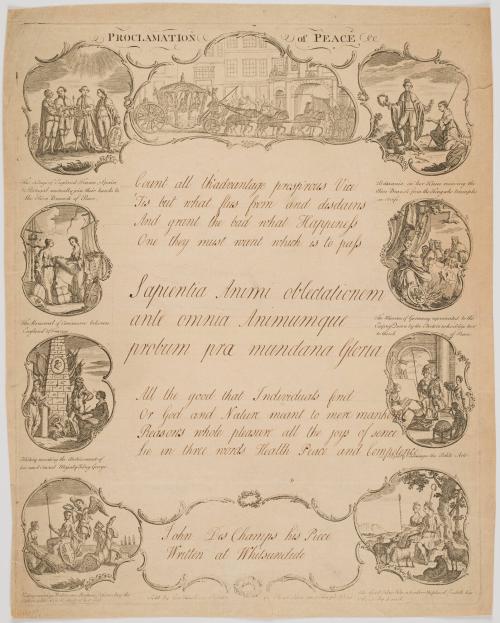 PROCLAMATION of PEACE &c
The Kings of England France, Spain
& Portugal mutually join their hands to
the Olive Branch of Peace
Britannia on her Knees receiving the
Olive Branch from the King who tramples
on
Count all th'advantage prosp'rous Vice
Tis but what flies from and disdains
And grant the bad what Happiness
One they must want which is to pass
The Renewal of Commerce between
England & France
The Miseries of Germany represented to the
of Peace
Sapientia Animi oblectationem
ante omnia Animumque
probum præ mundana Gloria
All the good that Individuals find
Or God and Nature meant to mere mankind
Reasons whole pleasure all the joys of sence
lie in three words Health Peace and Competence
History recording the Atchievements of
his most Sacred Majesty King George
the Polite Arts
John Des Champs his Piece
Written at Whitsuntide